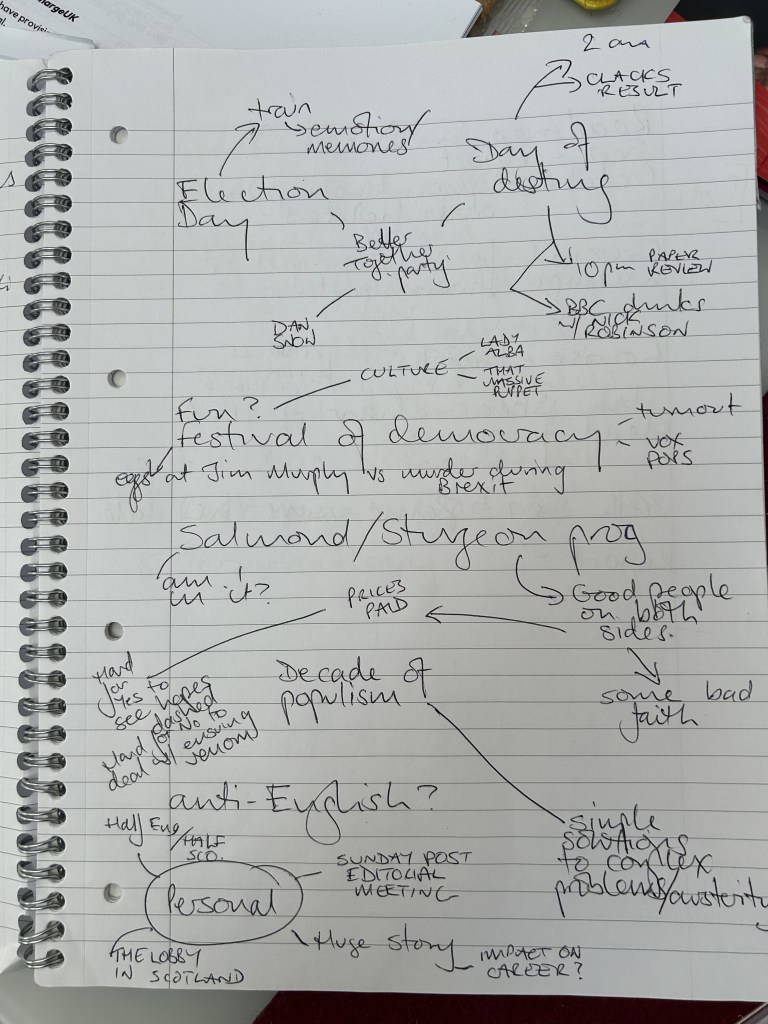 chargeUK
have provisi
al.
2 am
CLACKS
RESULT
train
emotion/
memories
Day of
destiny
Election
Day
Better
Together
party
10pm PAPER
REVIEW
BBC drinks
w/ NICK
ROBINSON
DAN
SNOW
CULTURE
LADY
ALBA
THAT
MASSIVE
PUPPET
Fun?
festival of democracy
turnout
VOX
POPS
eggs at Jim Murphy vs murder during
Brexit
Salmond/Sturgeon prog
am I
in it?
PRICES
PAID
Good people
on both
sides.
some bad
faith
Hard
for
Yes to
see hopes
dashed
Hard for No to
deal w/ ensuing
venom
Decade of
populism
anti-English?
simple
solutions
to complex
problems/austerity
Half Eng
/HALF
SCO.
Personal
SUNDAY POST
EDITORIAL
MEETING
THE LOBBY
IN SCOTLAND
Huge story
IMPACT ON
CAREER?